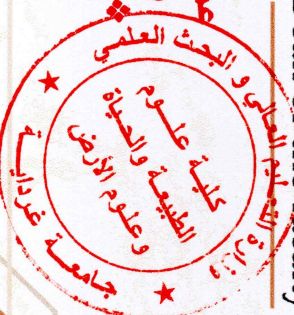 وزارة التعليم العالي و البحث العلمي
كلية علوم
الطبيعة والحياة
وعلوم الأرض
جامعة غرداية